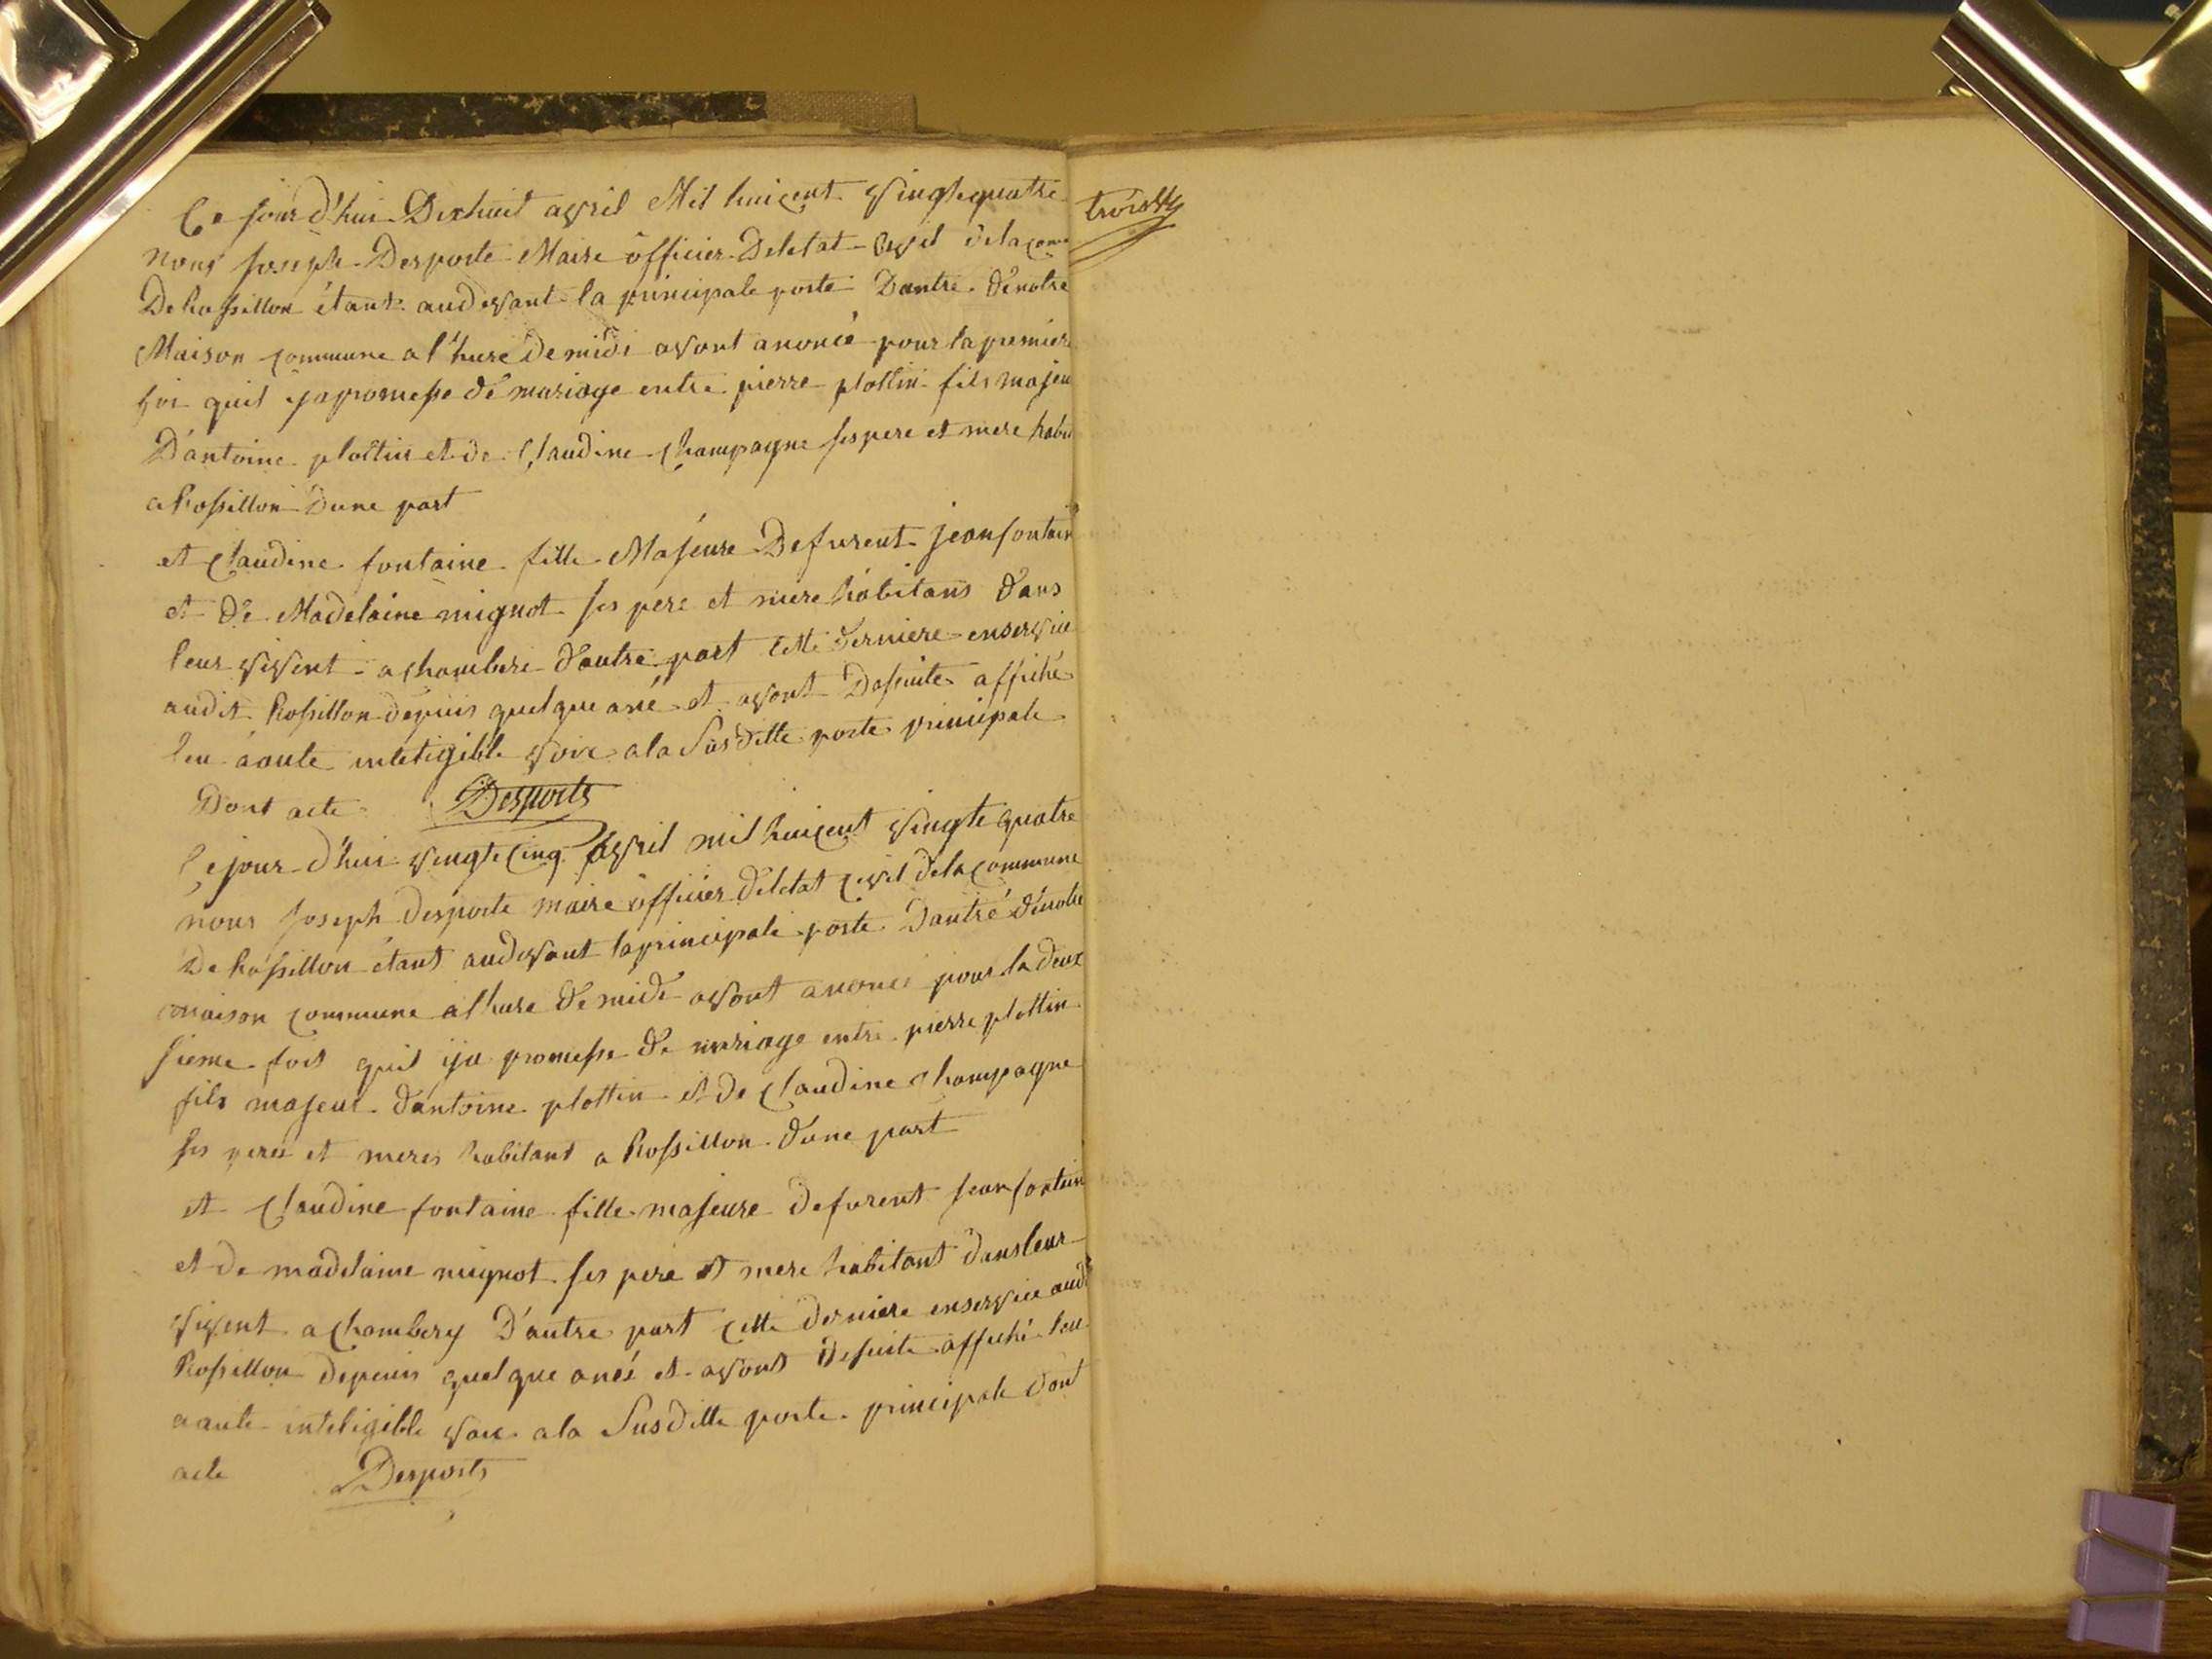 Ce jour d'hui Dixhuit avril Mil huicent vingtequatre
nous Joseph Desporte Maire officier Deletat Civil delacom
De Rossillon étant audevant la principale porte Dantre denotre
Maison commune a l'hure de midi avont anoncé pour la premiere
foi quil ya promesse de mariage entre pierre plottin fils majeu
D'antoine plottin et de Claudine Champagne ses pere et mere habit
a Rossillon dune part
et Claudine fontaine fille Majeure Defurent jean fontain
et de Madelaine mignot ses pere et mere habitans dans
leur vivent a Chambere d'autre part cette derniere enservice
audit Rossillon depuis quelque ané et avont Dasuite affiché
leu a aute inteligible voix a la Susditte porte principale
Dont acte Desports
Cejour d'hui vingtecinq avril mil huicent vingte quatre
nous Joseph desporte maire officier deletat civil dela commune
De Rossillon étant audevant laprincipale porte Dantré dénotre
maison commune a lhure de midi avont anoncé pour la deux
sieme fois quil ya promesse de mariage entre pierre plottin
fils majeur d'antoine plottin et de Claudine Champagne
ses peres et meres habitant a Rossillon d'une part
et Claudine fontaine fille majeure defurent jean fontain
et de madelaine mignot ses pere et mere habitant dans leur
vivent a Chambery D'autre part cette derniere enservice aud
Rossillon depuis quelque anés et avont desuite affiché leu
a aute inteligible voix a la Susditte porte principale dont
acte Desports
trois